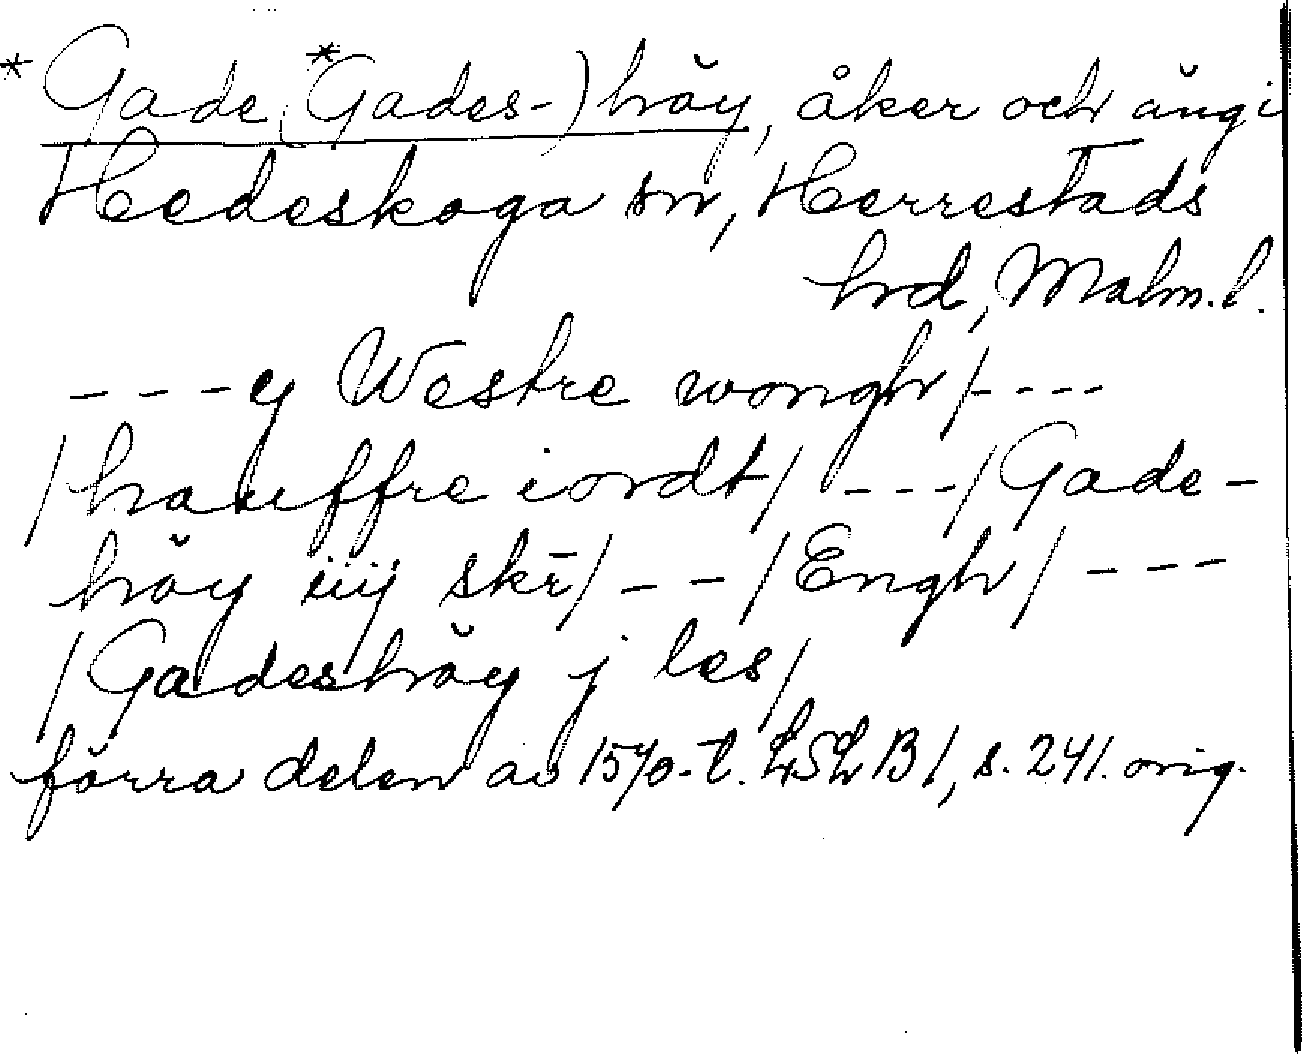 *Gade (*Gades-) höy, åker och äng i
Hedeskoga sn, Herrestads
hrd, Malm. l.
- - - y Westre wongh / - - - -
/ hauffre iordt / - - - / Gade-
höy iiij skr̄ / - - - / Engh / - - -
/ Gadeshöy j les /
förra delen av 1570-t. LSLB 1, s. 241. orig.